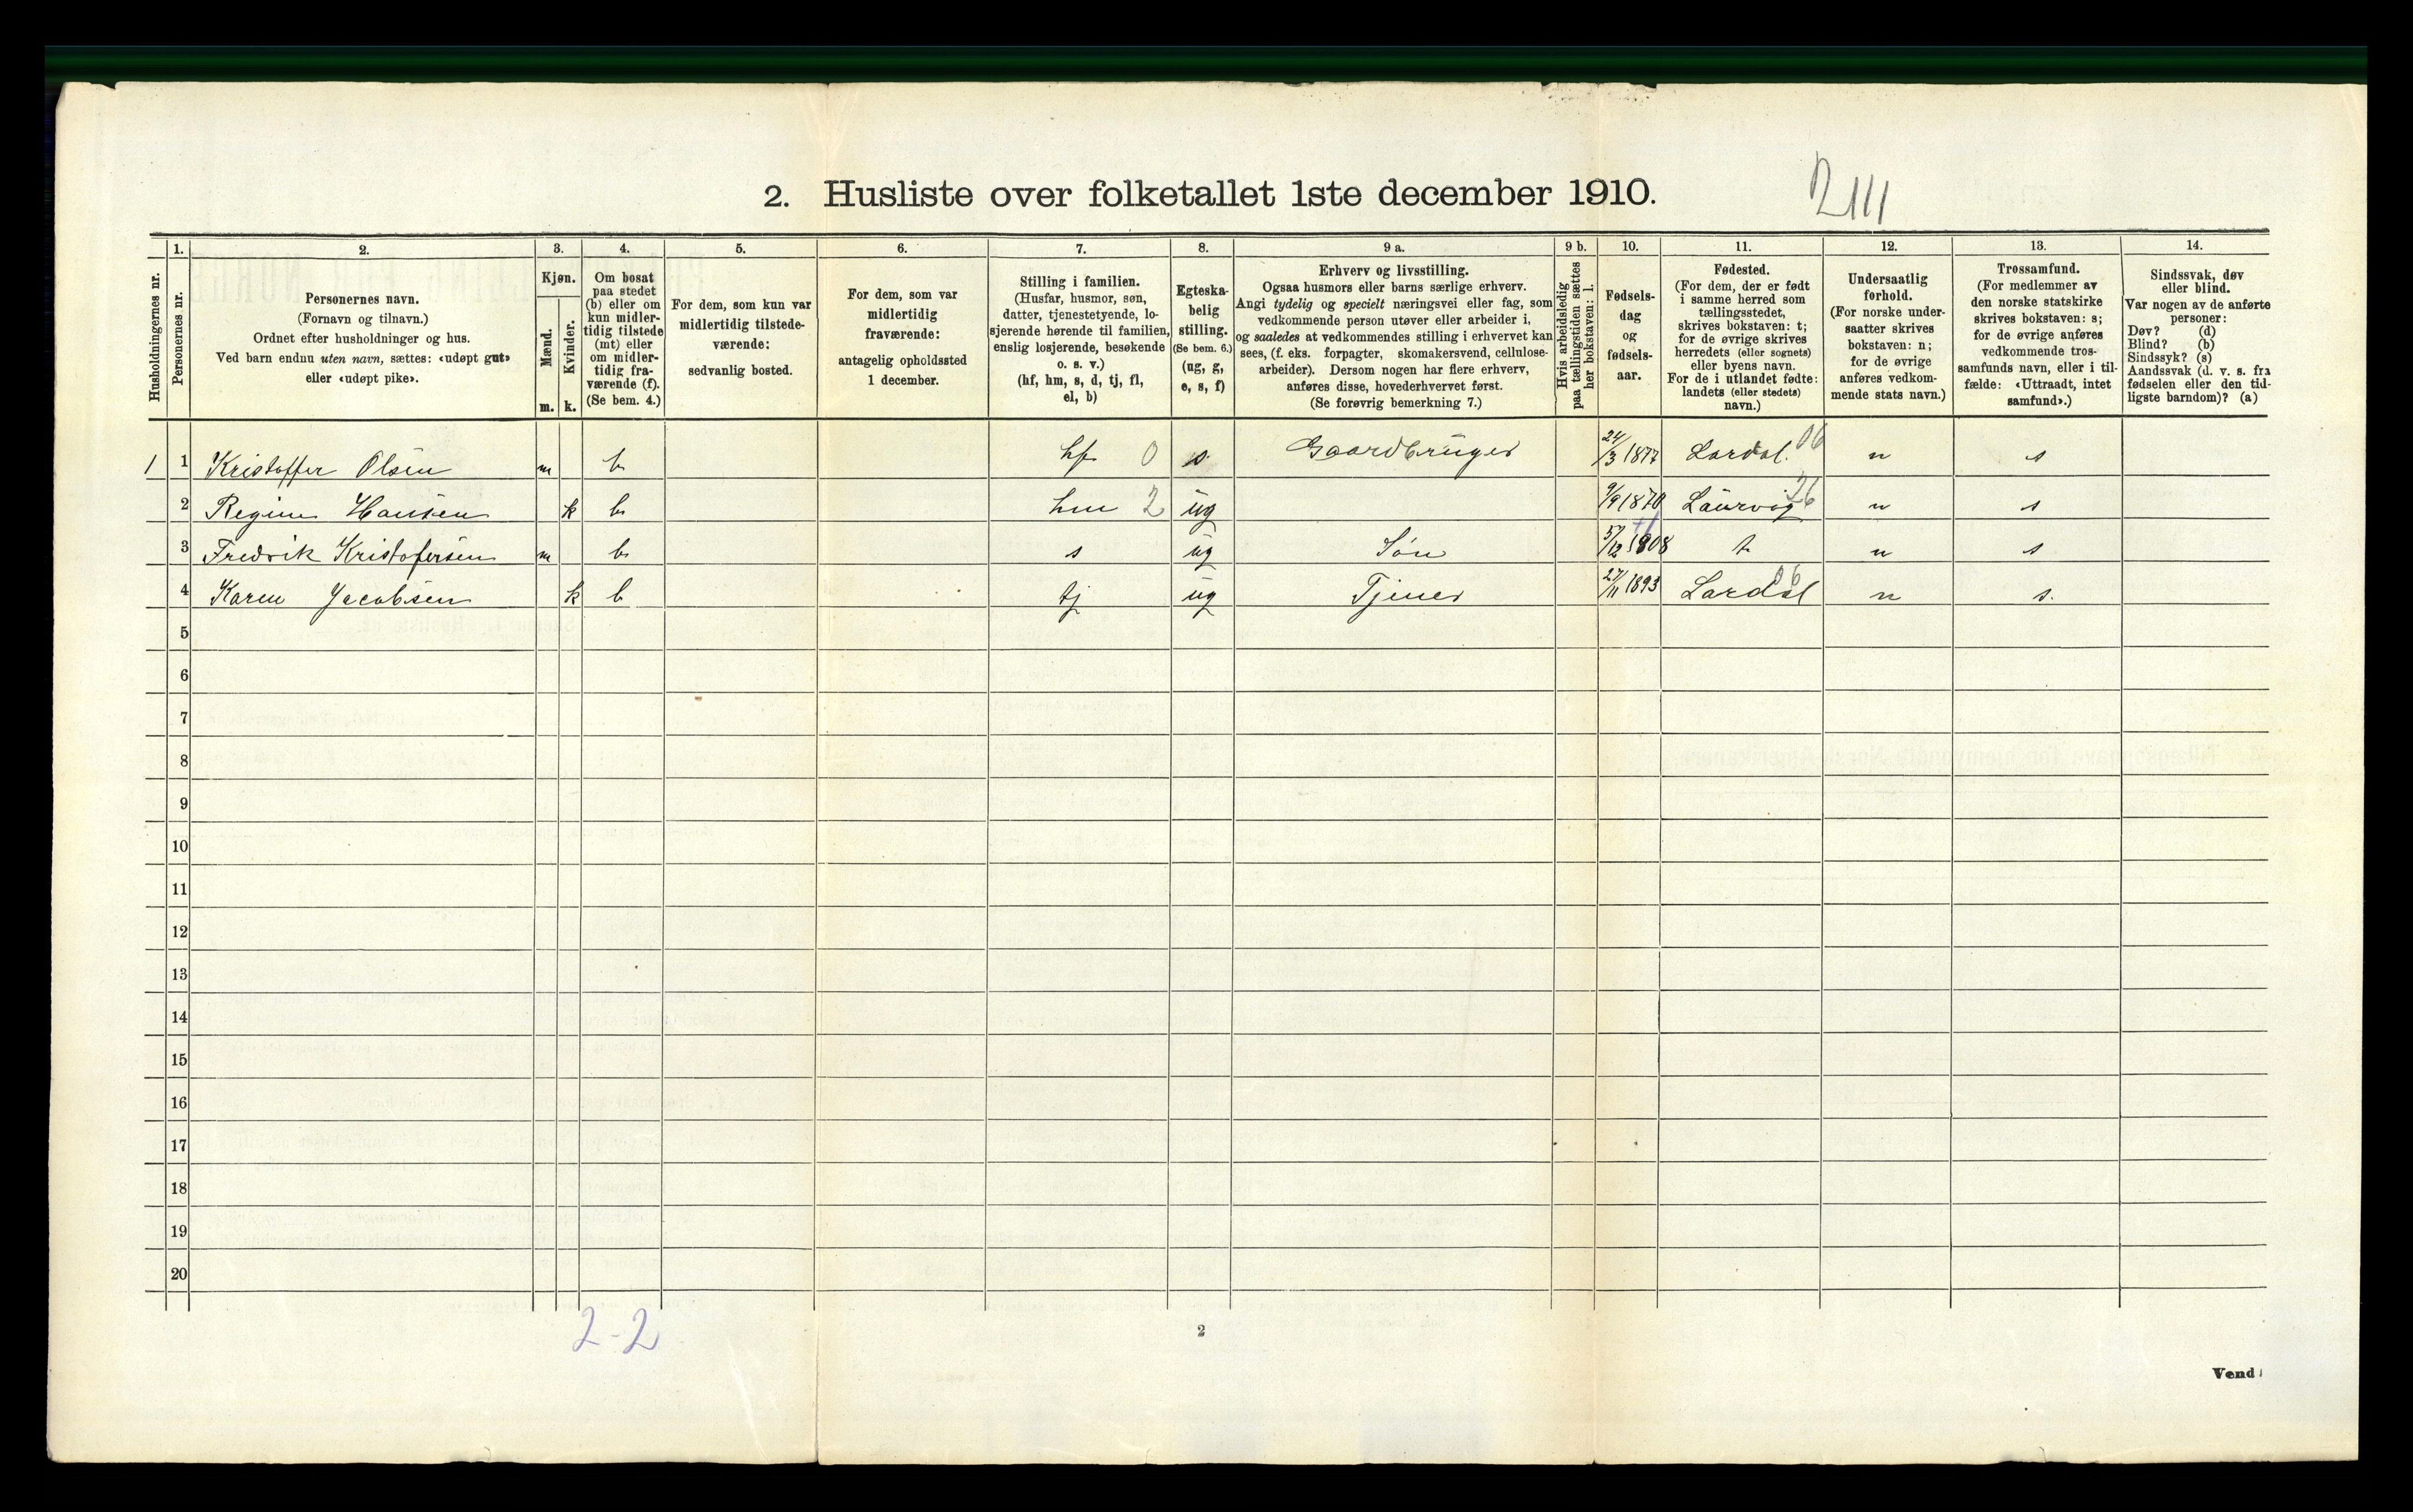 2. Husliste over folketallet 1ste december 1910.
Husholdningernes nr.
1.
Personernes nr.
2.
Personernes navn.
(Fornavn og tilnavn.)
Ordnet efter husholdninger og hus.
Ved barn endnu uten navn, sættes: «udøpt gut»
eller «udøpt pike».
3.
Kjøn.
Mænd.
Kvinder.
m. k.
4.
Om bosat
paa stedet
(b) eller om
kun midler-
tidig tilstede
(mt) eller
om midler-
tidig fra-
værende (f).
(Se bem. 4.)
5.
For dem, som kun var
midlertidig tilstede-
værende:
sedvanlig bosted.
6.
For dem, som var
midlertidig
fraværende:
antagelig opholdssted
1 december.
7.
Stilling i familien.
(Husfar, husmor, søn,
datter, tjenestetyende, lo-
sjerende hørende til familien,
enslig losjerende, besøkende
o. s. v.)
(hf, hm, s, d, tj, fl,
el, b)
8.
Egteska-
belig
stilling.
(Se bem. 6.)
(ug, g,
e, s, f)
9 a.
Erhverv og livsstilling.
Ogsaa husmors eller barns særlige erhverv.
Angi tydelig og specielt næringsvei eller fag, som
vedkommende person utøver eller arbeider i,
og saaledes at vedkommendes stilling i erhvervet kan
sees, (f. eks. forpagter, skomakersvend, cellulose-
arbeider). Dersom nogen har flere erhverv,
anføres disse, hovederhvervet først.
(Se forøvrig bemerkning 7.)
9 b.
Hvis arbeidsledig
paa tællingstiden sættes
her bokstaven: l.
10.
Fødsels-
dag
og
fødsels-
aar.
11.
Fødested.
(For dem, der er født
i samme herred som
tællingsstedet,
skrives bokstaven: t;
for de øvrige skrives
herredets (eller sognets)
eller byens navn.
For de i utlandet fødte:
landets (eller stedets)
navn.)
12.
Undersaatlig
forhold.
(For norske under-
saatter skrives
bokstaven: n;
for de øvrige
anføres vedkom-
mende stats navn.)
13.
Trossamfund.
(For medlemmer av
den norske statskirke
skrives bokstaven: s;
for de øvrige anføres
vedkommende tros-
samfunds navn, eller i til-
fælde: «Uttraadt, intet
samfund».)
14.
Sindssvak, døv
eller blind.
Var nogen av de anførte
personer:
Døv? (d)
Blind? (b)
Sindssyk? (s)
Aandssvak (d. v. s. fra
fødselen eller den tid-
ligste barndom)? (a)
1 1 Kristoffer Olsen m b hf 0 s Gaardbruger 24/3 1877 Lardal. 06 n s
2 Regine Hansen k b hm 2 ug 9/9 1870 Laurvig 26 n s
3 Fredrik Kristofersen m b s ug Søn 5/12 1908 t n s
4 Karen Jacobsen k b tj ug Tjener 27/11 1893 Lardal 06 n s.
5
6
7
8
9
10
11
12
13
14
15
16
17
18
19
20
2-2
2
Vend!